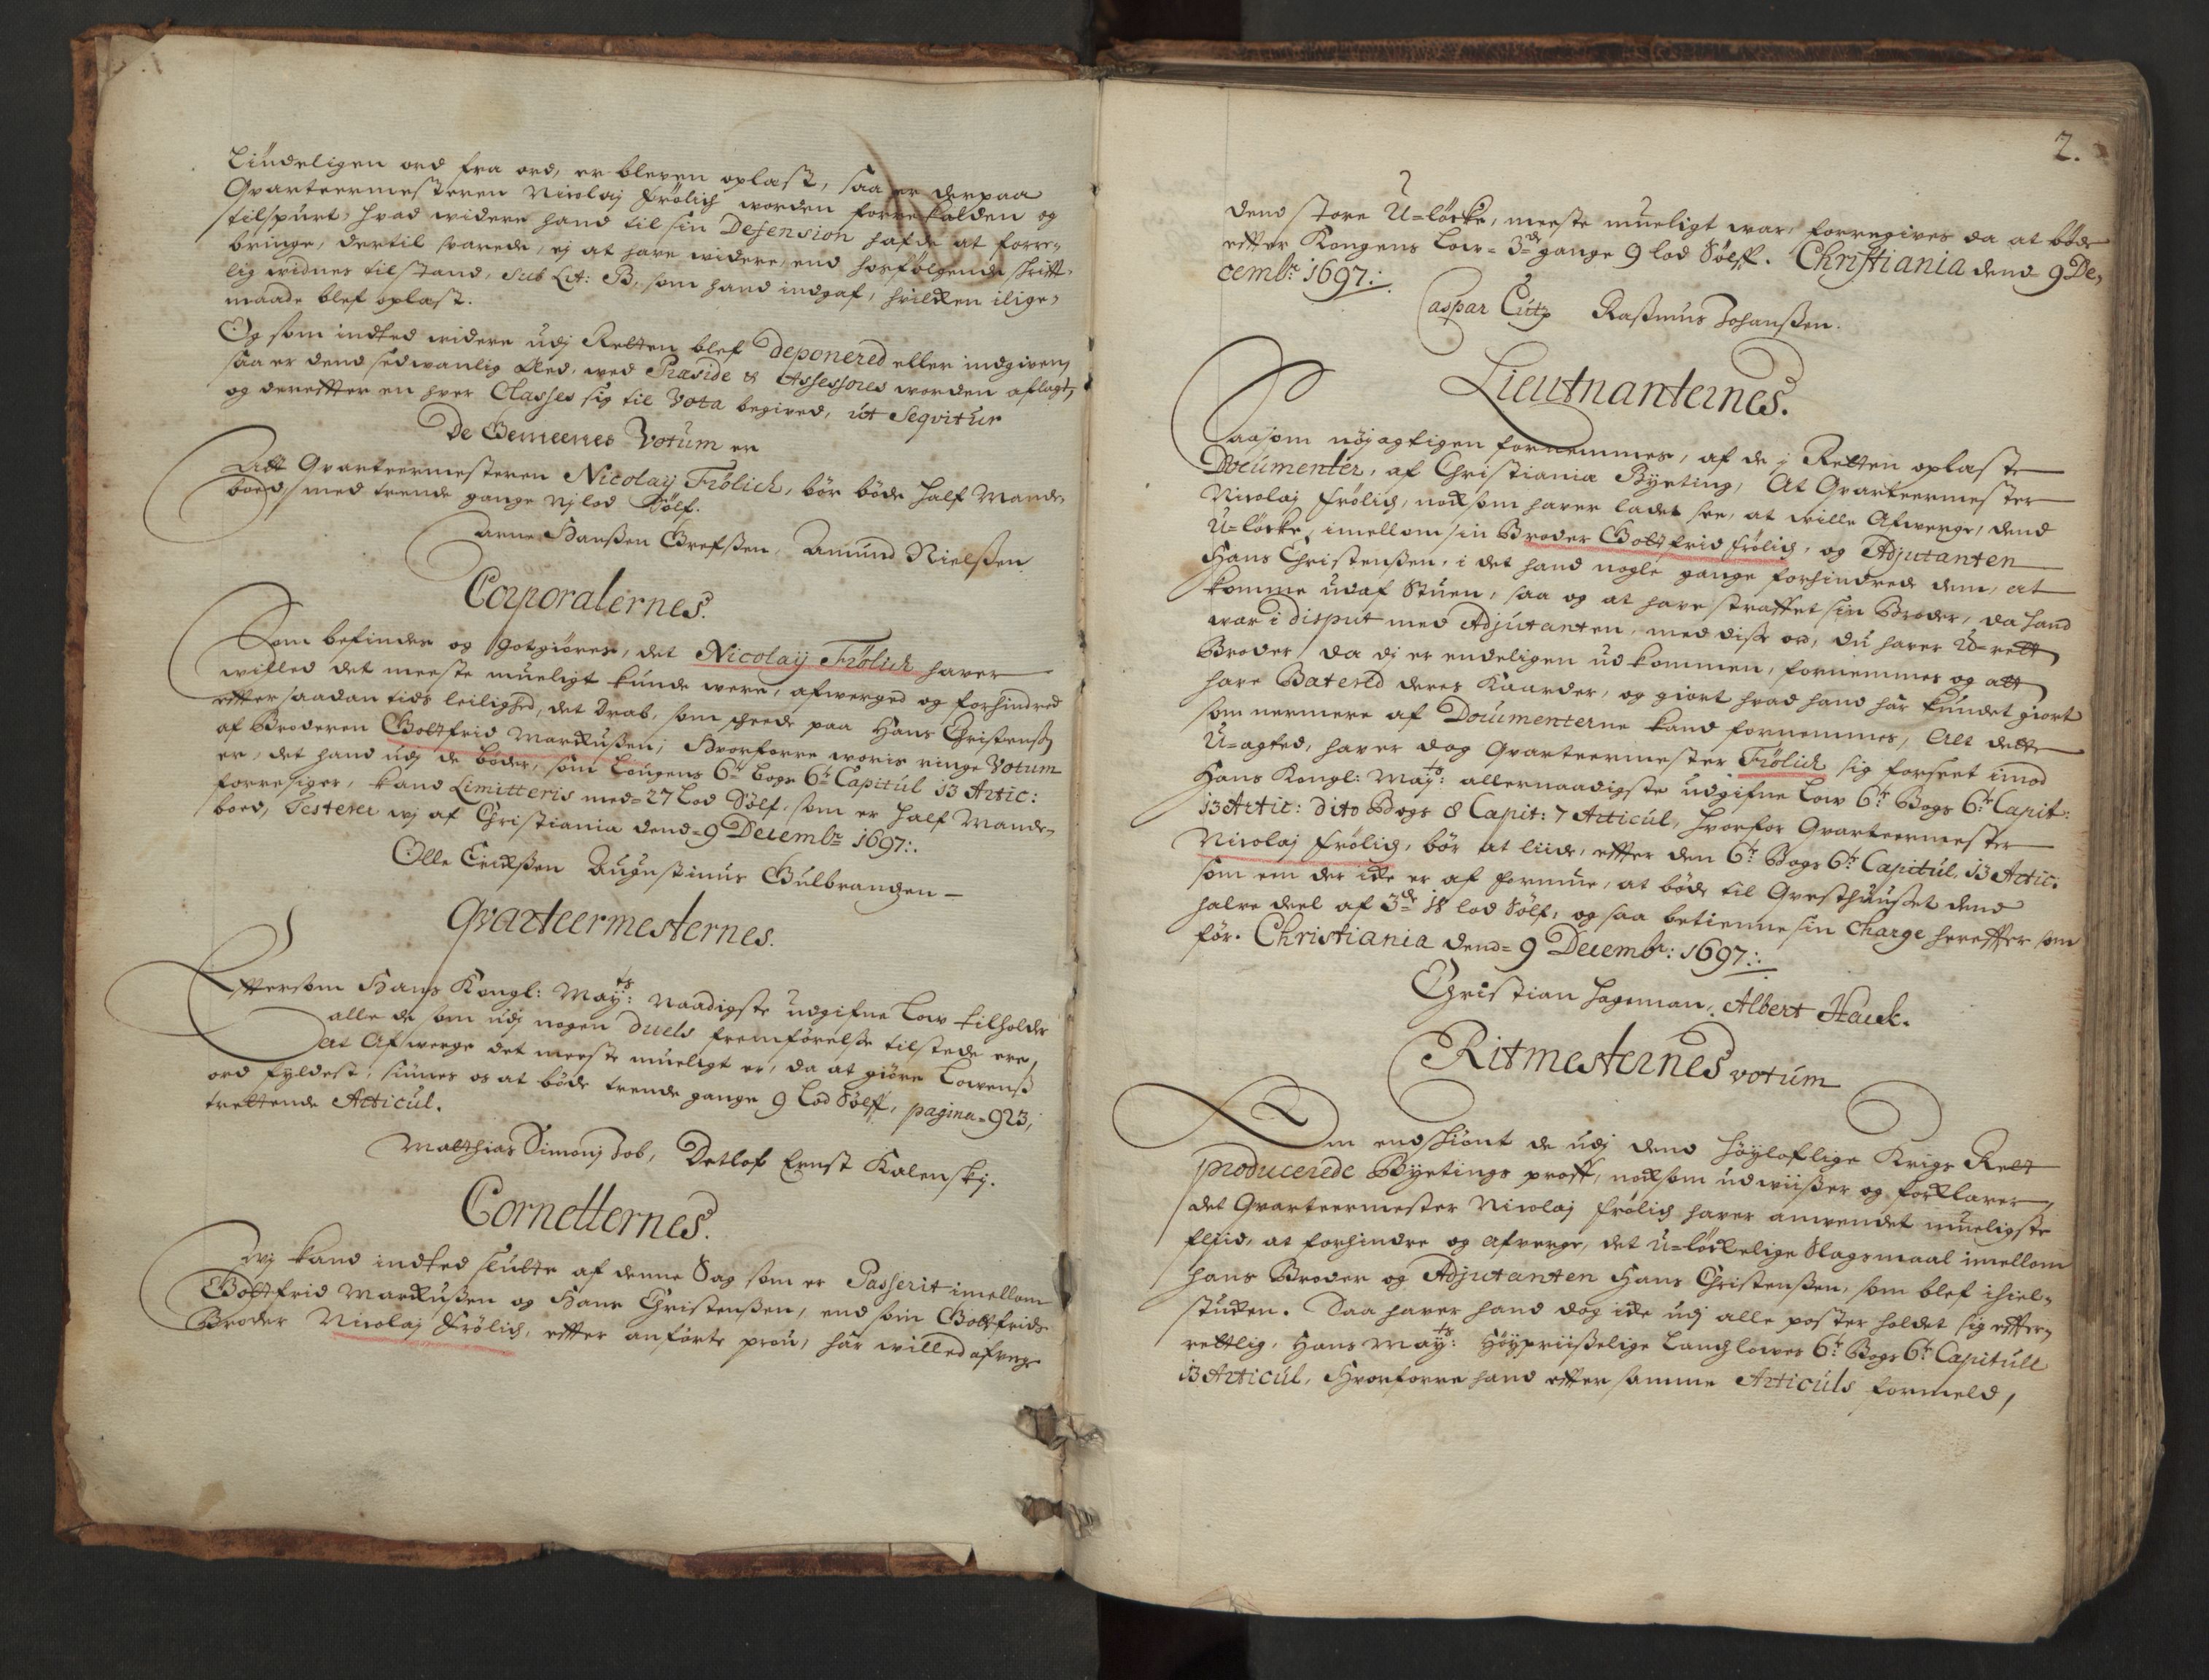 Liudeligen ord fra ord, er bleven oplæst, saa er derpaa
Qvarteermesteren Nicolaj Frölich worden forrekalden og
tilspurt, hvad widere hand til sin Defension hafde at forre-
bringe, dertil svarede, ej at have widere, end hosfölgende skrift-
lig widnes tilstand, sub Lit: B, som hand indgaf, hvilken ilige-
maade blef oplæst.
Og som indted widere udj Retten blef deponered eller indgiven,
saa er dend sedwanlig Æed, wed Præside & Assessores worden aflagt,
og derefter en hver Classes sig til Vota begived, ut Seqvitur
De Gemeenes Votum er
Att Qvarteermesteren Nicolaÿ Frölich, bör böde half Mande-
boed, med trende gange nj lod Sölf.
Arne Hanßen Grefßen, Amund Nielßen
Corporalernes.
Som befindes og godtgiöres, det Nicolaÿ Frölich haver
willed det meeste mueligt kunde were, afwerged og forhindred
effter saadan tids leilighed, det Drab, som skeede paa Hans Christensön
af Broderen Gottfrid Markußen; Hvorforre woris ringe Votum
er, det hand udj de böder, som Lougens 6te bogs 6te Capitul 13 Artic:
forresiger, kand Limitteris med 27 Lod Sölf, som er half Mande-
boed, Testerer wj af Christiania dend 9 Decembr 1697:.
Olle Erichßen Augustinus Gulbrandzen
Qvarteermesternes.
Efftersom Hans Kongl: Maÿts: Naadigste udgifne Low tilholder
alle de som udj nogen duels fremförelse tilstede ere,
at Afwerge det meeste mueligt er, da at giöre Lowenß
ord fyldest, siunes os at böde trende gange 9 Lod Sölff, pagina 923,
trettende Articul.
Matthias Simonj Job, Detlof Ernst Kalenskj.
Cornetternes.
Wj kand indted slutte af denne Sag som er Passerit imellom
Gottfrid Markußen og Hans Christenßen, end som Gottfrids
Broder Nicolaj Frölich, effter anförte prou, har willed afwerge
2.
dend store U=löcke, meeste mueligt war, forregives da at böde
effter Kongens Low 3de gange 9 lod Sölff. Christiania dend 9 De-
cembr: 1697:.
Caspar Lutz Raßmus Johanßen.
Lieutnanternes.
Saasom nöjagtigen fornemmes, af de j Retten oplæste
Documenter, af Christiania Byeting, At Qvarteermester
Nicolaj Frölich, noksom haver ladet see, at wille Afwerge, dend
U=löcke, imellom sin Broder Gottfrid Frölich, og Adjutanten
Hans Christenßen, i det hand nogle gange forhindrede dem, at
komme udaf Stuen, saa og at have straffet sin Broder, da hand
war i disput med Adjutanten, med disse ord, du haver U=rett
Broder, da dj er endeligen udkommen, fornemmes og att
have Batered deres Kaarder, og giort hvad hand har kundet giort
som nermere af Documenterne kand fornemmes, Alt dette
U=agted, haver dog Qvarteermester Frölich sig forseet imod
Hans Kongl: Maÿts: allernaadigste udgifne Low 6te Bogs 6te Capit:
13 Artic: dito Bogs 8 Capit: 7 Articul, hvorfor Qvarteermester
Nicolaj Frölich, bör at liide, effter den 6te Bogs 6te Capitul, 13 Artic:
som en der icke er af formue, at böde til Qvesthuuset dend
halve deel af 3de 18 lod Sölf, og saa betienne sin Charge hereffter som
för. Christiania dend 9 Decembr: 1697:.
Christian Hageman, Albert Hauck.
Ritmesternes votum
Om endskiönt de udj dend höÿloflige Krigs Rett
producerede Byetings proff, noksom udwiißer og forklarer,
det Qvarteermester Nicolaj Frölich haver anwendet mueligste
fliid, at forhindre og Afverge, det u=löckelige Slagsmaal imellom
hans Broder og Adjutanten Hans Christenßen, som blef ihiel-
stucken. Saa haver hand dog icke udj alle poster holdet sig effter-
rettlig, Hans Maÿts: Höÿpriißelige Landzlowes 6te Bogs 6te Capitull
13 Articul, Hvorforre hand effter samme Articuls formeld,